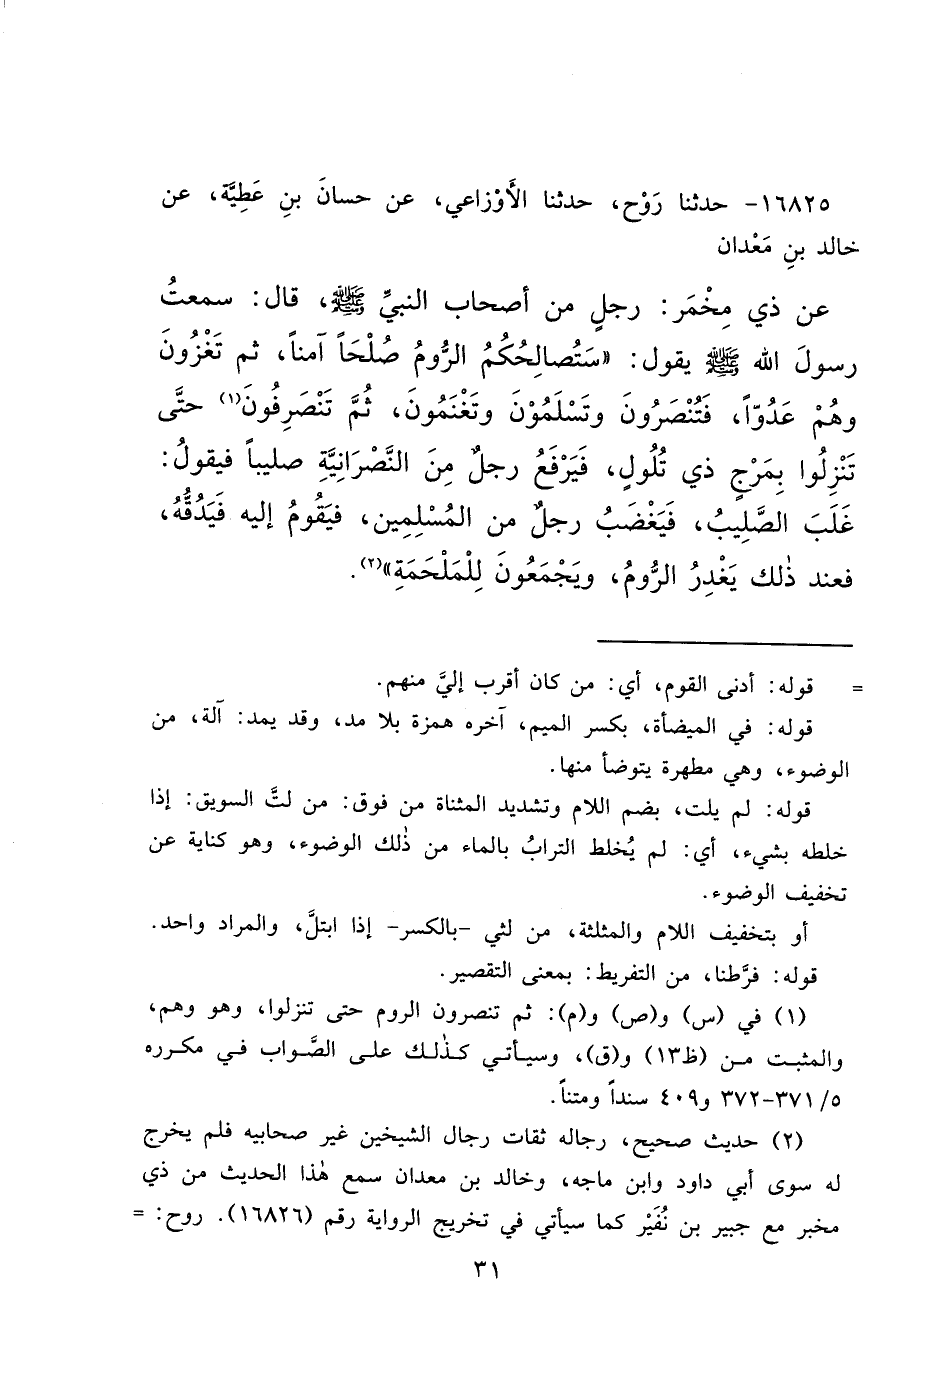 ١٦٨٢٥- حدثنا رَوْح، حدثنا الأَوْزاعي، عن حسانَ بنِ عَطِيَّة، عن
خالد بنِ مَعْدان
عن ذي مِخْمَر: رجلٍ من أصحاب النبيِّ ﷺ، قال: سمعتُ
رسولَ الله ﷺ يقول: «سَتُصالِحُكُمُ الرُّومُ صُلْحَاً آمناً، ثم تَغْزُونَ
وهُمْ عَدُوّاً، فَتُنْصَرُونَ وتَسْلَمُوْنَ وتَغْنَمُونَ، ثُمَّ تَنْصَرِفُونَ(١) حتَّى
تَنْزِلُوا بِمَرْجٍ ذي تُلُولٍ، فَيَرْفَعُ رجلٌ مِنَ النَّصْرَانِيَّةِ صليباً فيقولُ:
غَلَبَ الصَّلِيبُ، فَيَغْضَبُ رجلٌ من المُسْلِمِين، فيَقُومُ إليه فَيَدُقُّهُ،
فعند ذٰلك يَغْدِرُ الرُّومُ، ويَجْمَعُونَ لِلْمَلْحَمَةِ»(٢).
= قوله: أدنى القوم، أي: من كان أقرب إليَّ منهم.
قوله: في الميضأة، بكسر الميم، آخره همزة بلا مد، وقد يمد: آلة، من
الوضوء، وهي مطهرة يتوضأ منها.
قوله: لم يلت، بضم اللام وتشديد المثناة من فوق: من لتَّ السويق: إذا
خلطه بشيء، أي: لم يُخلط الترابُ بالماء من ذٰلك الوضوء، وهو كناية عن
تخفيف الوضوء.
أو بتخفيف اللام والمثلثة، من لثي -بالكسر- إذا ابتلَّ، والمراد واحد.
قوله: فرَّطنا، من التفريط: بمعنى التقصير.
(١) في (س) و(ص) و(م): ثم تنصرون الروم حتى تنزلوا، وهو وهم،
والمثبت من (ظ١٣) و(ق)، وسيأتي كذٰلك على الصَّواب في مكرره
٥/ ٣٧١-٣٧٢ و٤٠٩ سنداً ومتناً.
(٢) حديث صحيح، رجاله ثقات رجال الشيخين غير صحابيه فلم يخرج
له سوى أبي داود وابن ماجه، وخالد بن معدان سمع هٰذا الحديث من ذي
مخبر مع جبير بن نُفَيْر كما سيأتي في تخريج الرواية رقم (١٦٨٢٦). روح: =
٣١